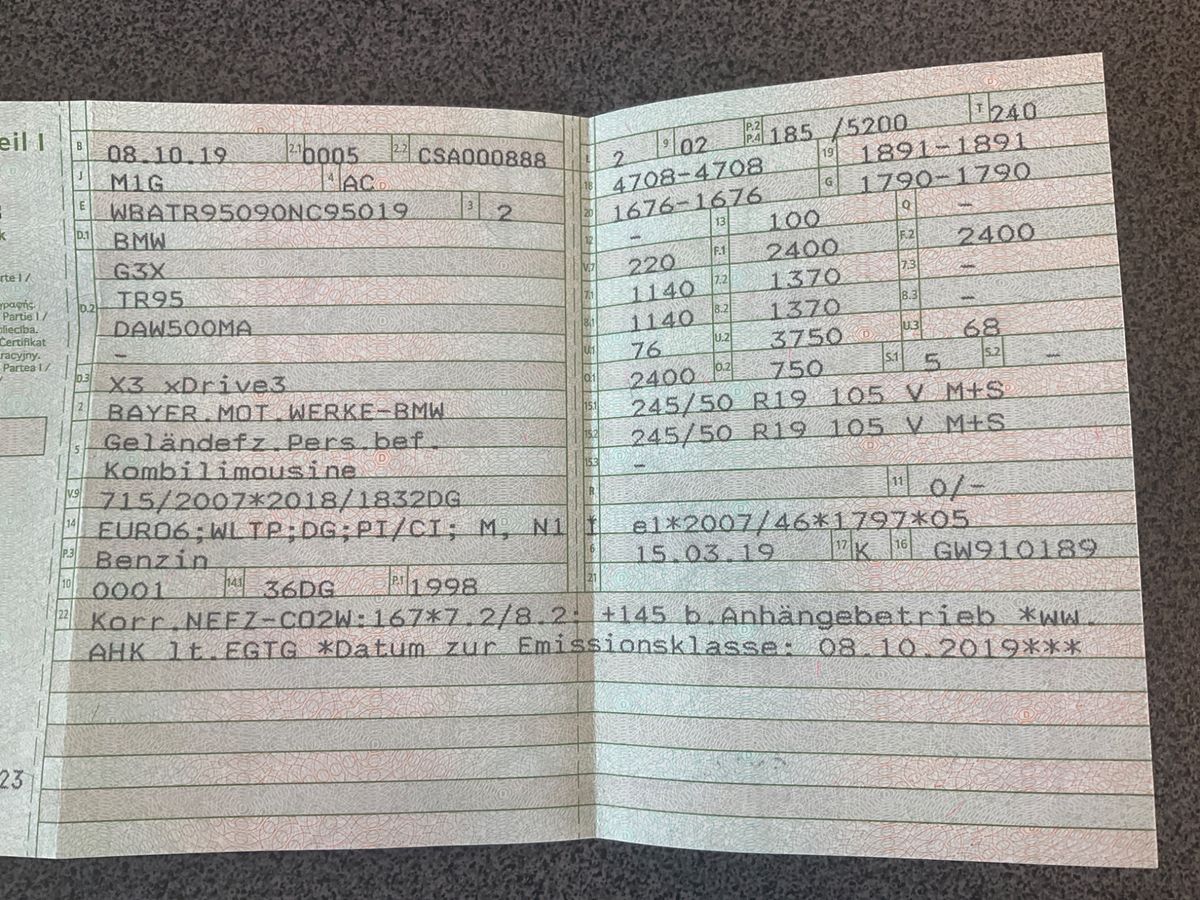 eil I
k
rte I /
γραφής.
Partie I /
Certifikat
racyjny.
Partea I /
23
B 08.10.19 2.1 0005 2.2 CSA000888
J M1G 4 AC
E WBATR95090NC95019 3 2
D.1 BMW
G3X
D.2 TR95
DAW500MA
–
D.3 X3 xDrive3
2 BAYER.MOT.WERKE-BMW
5 Geländefz.Pers.bef.
Kombilimousine
V.9 715/2007*2018/1832DG
14 EURO6;WLTP;DG;PI/CI; M, N1 I
P.3 Benzin
10 0001 14.1 36DG P.1 1998
22 Korr.NEFZ-CO2W:167*7.2/8.2: +145 b.Anhängebetrieb *ww.
AHK lt.EGTG *Datum zur Emissionsklasse: 08.10.2019***
L 2 9 02 P.2 P.4 185 /5200 T 240
18 4708-4708 19 1891-1891
20 1676-1676 G 1790-1790
12 – 13 100 Q –
V.7 220 F.1 2400 F.2 2400
7.1 1140 7.2 1370 7.3 –
8.1 1140 8.2 1370 8.3 –
U.1 76 U.2 3750 U.3 68
O.1 2400 O.2 750 S.1 5 S.2 –
15.1 245/50 R19 105 V M+S
15.2 245/50 R19 105 V M+S
15.3 –
R 11 0/-
e1*2007/46*1797*05
6 15.03.19 17 K 16 GW910189
21